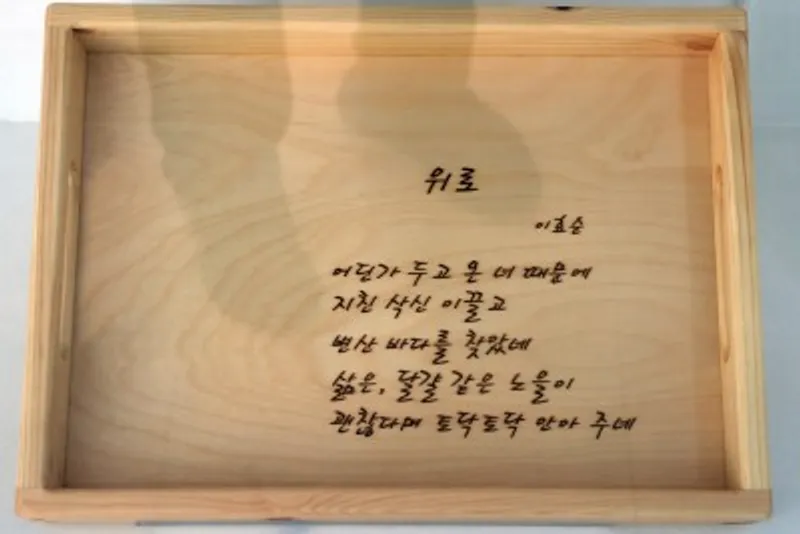 위로
이효순
어딘가 두고 온 너 때문에
지친 삭신 이끌고
변산 바다를 찾았네
삶은, 달걀 같은 노을이
괜찮다며 토닥토닥 안아 주네